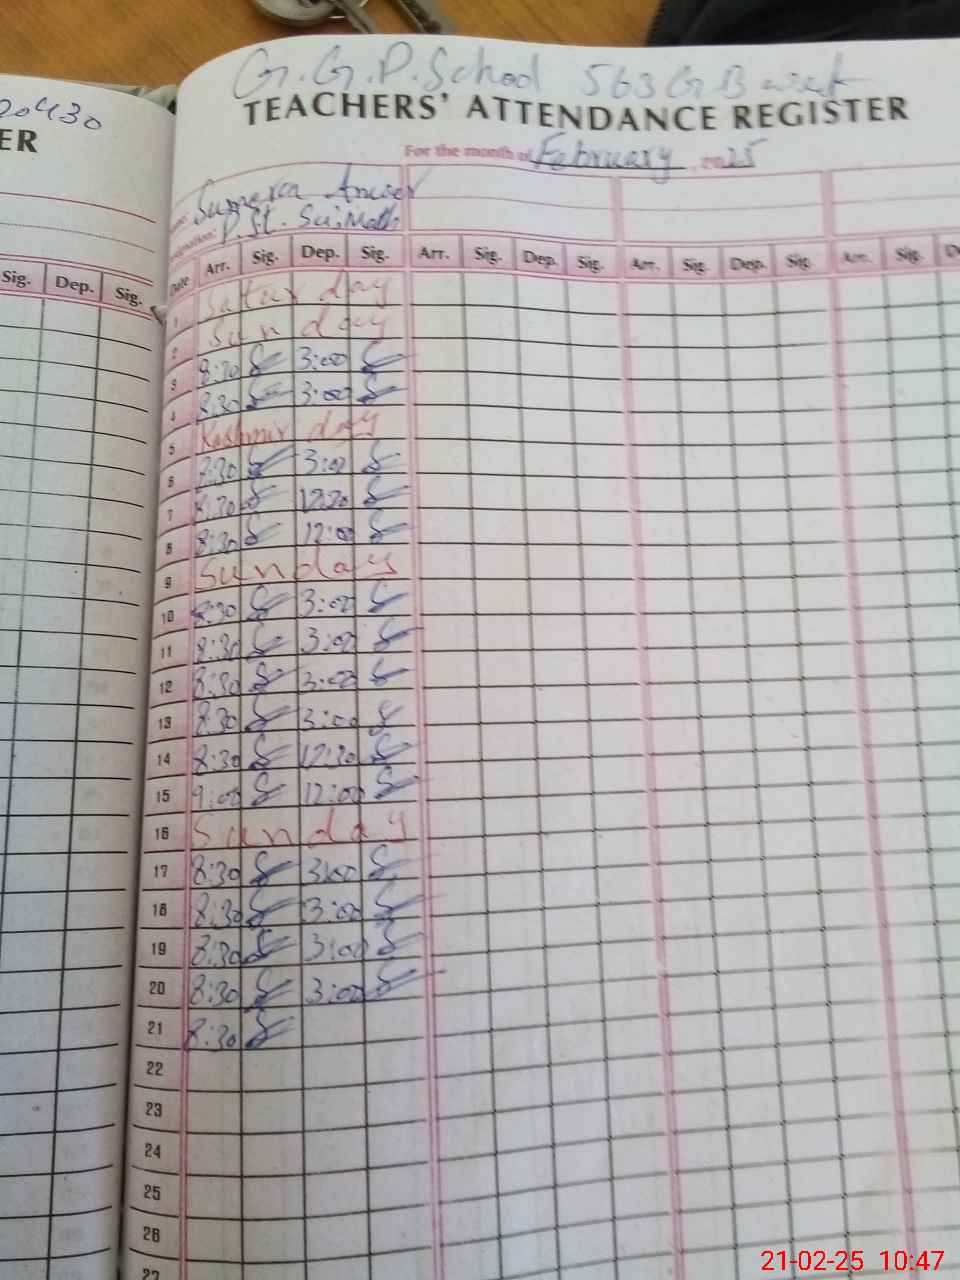 20430
ER
Sig. Dep. Sig.
G.G.P.School 563 G B west
TEACHERS' ATTENDANCE REGISTER
For the month of February 2025
Sumera
P.St. Sci, Math
Date Arr. Sig. Dep. Sig. Arr. Sig. Dep. Sig. Arr. Sig. Dep. Sig. Arr. Sig. D
1 Saturday
2 Sunday
3 8:30 3:00
4 8:30 3:00
5 Kashmir day
6 8:30 3:00
7 8:30 12:30
8 8:30 12:00
9 Sunday
10 8:30 3:00
11 8:30 3:00
12 8:30 3:00
13 8:30 3:00
14 8:30 12:30
15 9:00 12:00
16 Sunday
17 8:30 3:00
18 8:30 3:00
19 8:30 3:00
20 8:30 3:00
21 8:30
22
23
24
25
26
27
21-02-25 10:47